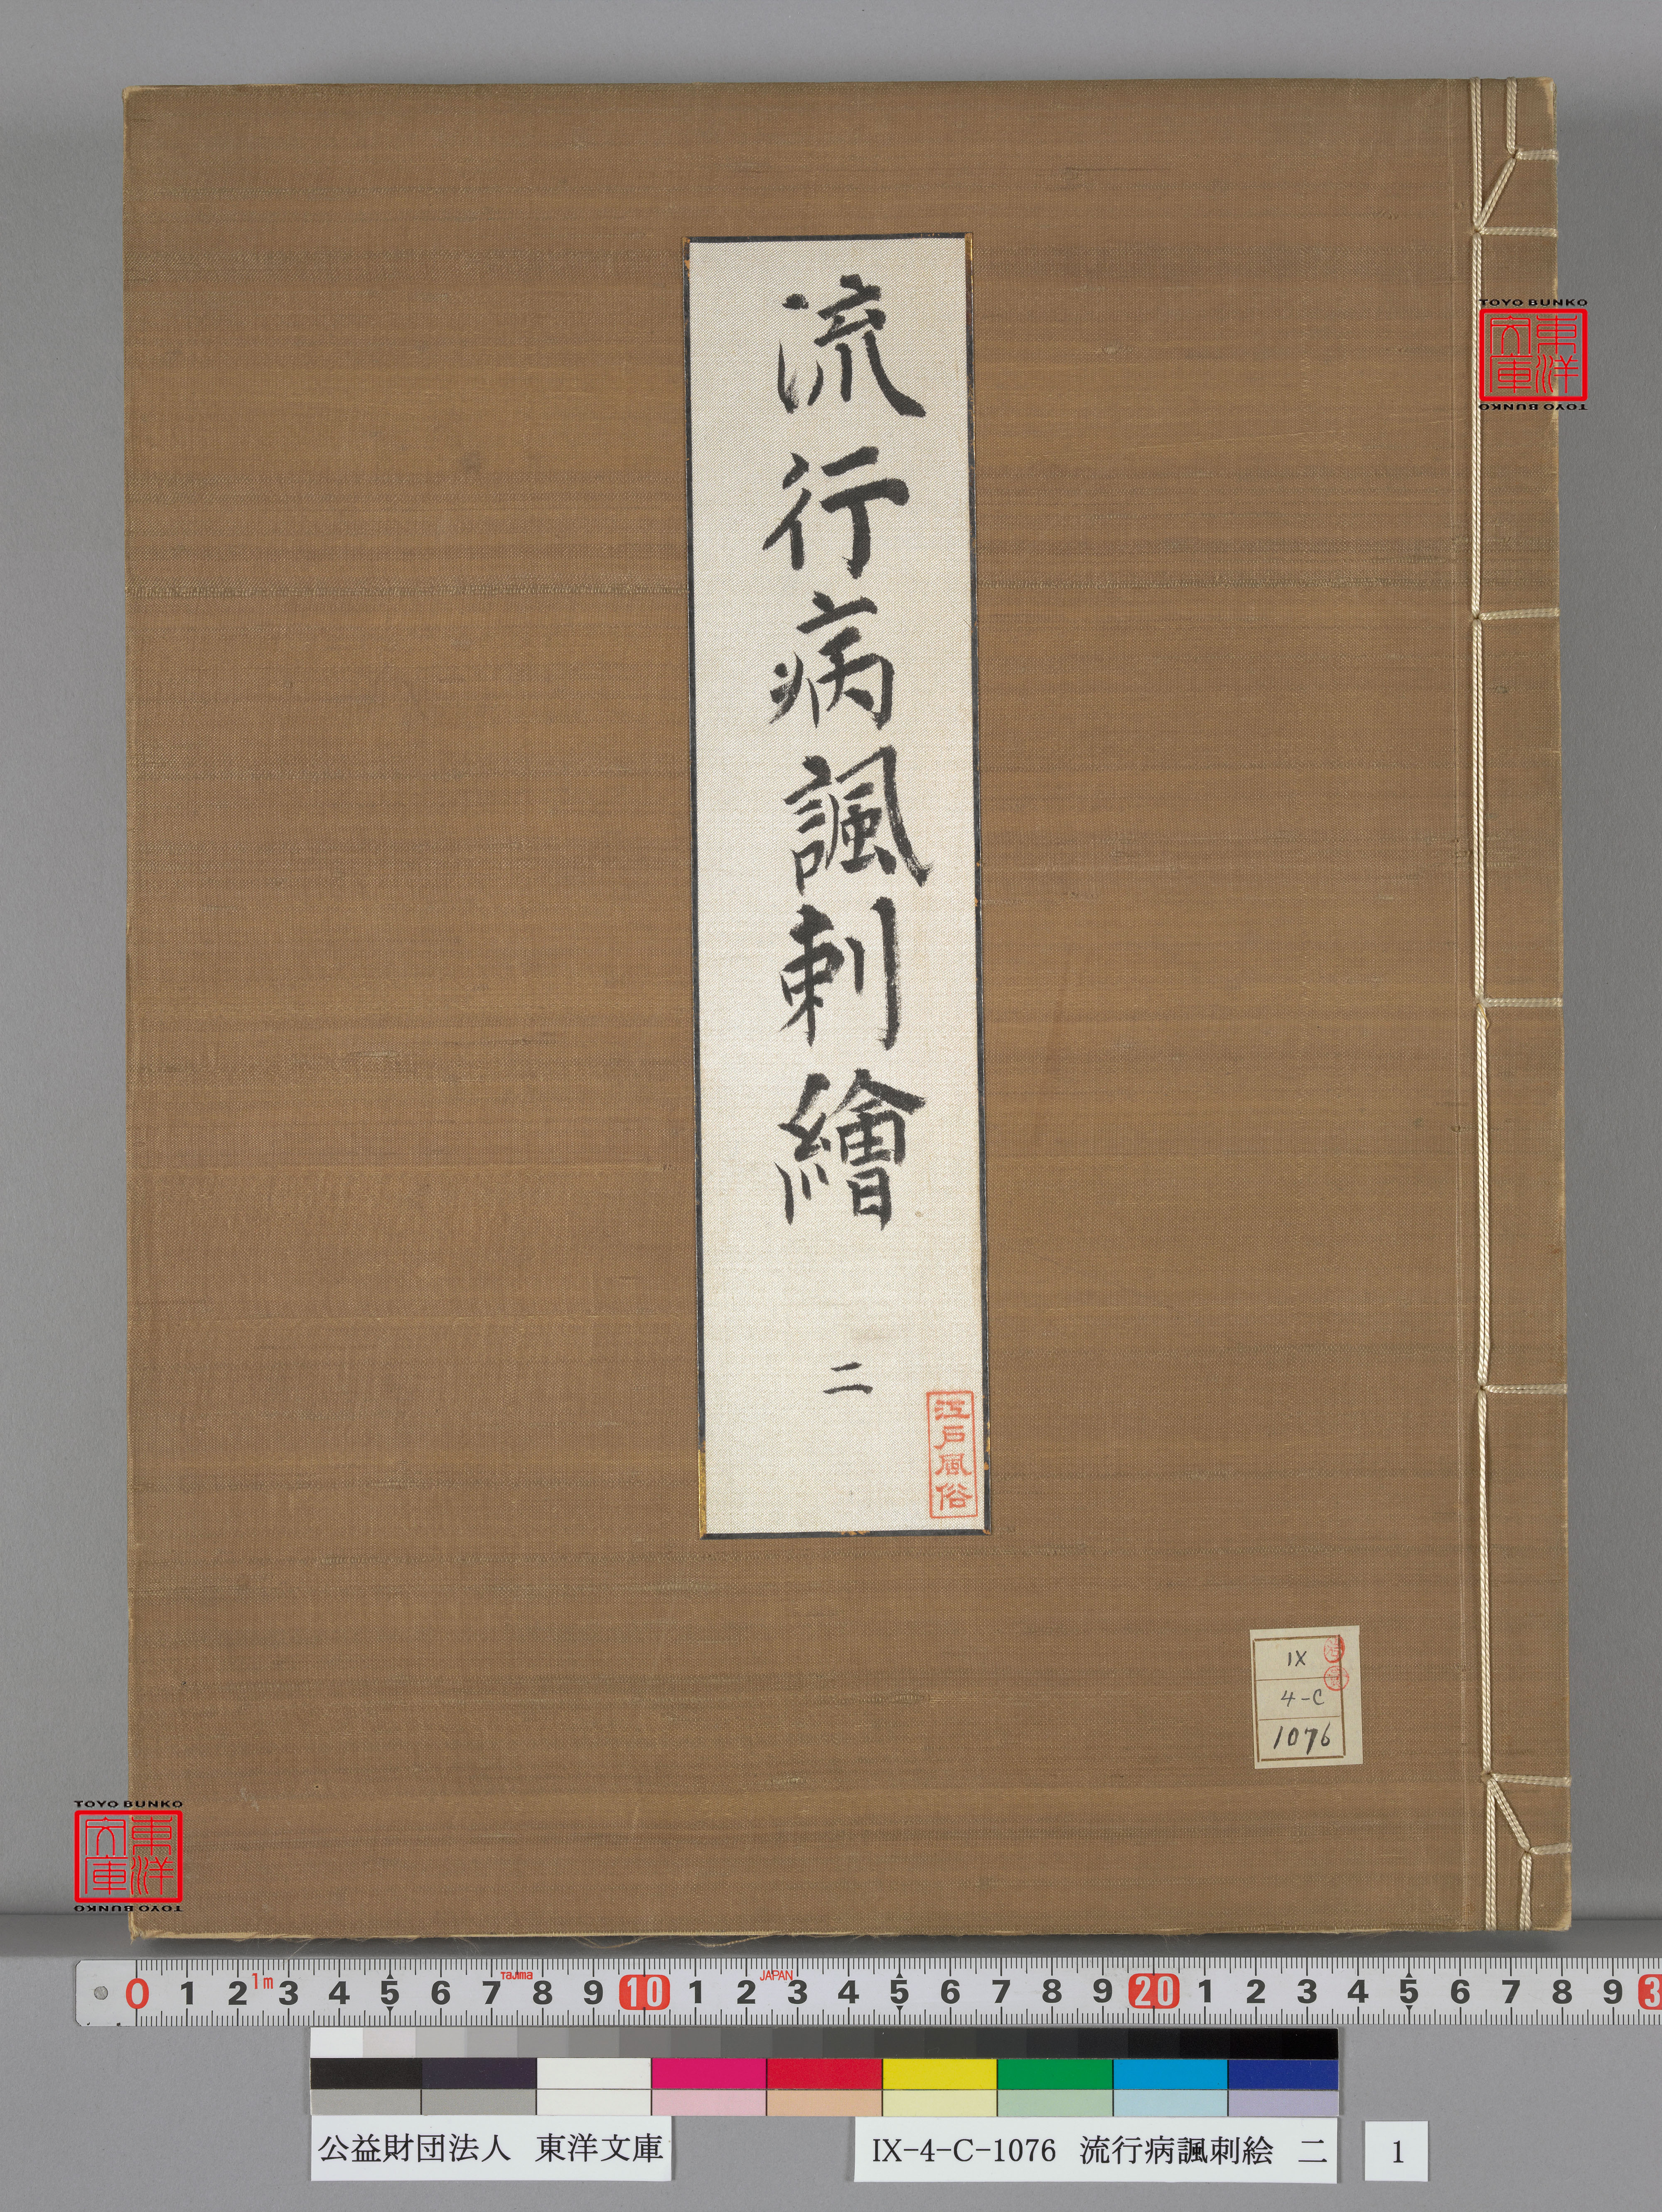 流行病諷刺繪
二
江戸風俗
TOYO BUNKO
東洋
文庫
TOYO BUNKO
IX
4-C
1076
TOYO BUNKO
東洋
文庫
TOYO BUNKO
0 1 2 1m 3 4 5 6 7 Tajima 8 9 10 1 2 JAPAN 3 4 5 6 7 8 9 20 1 2 3 4 5 6 7 8 9 3
公益財団法人 東洋文庫
IX-4-C-1076 流行病諷刺絵 二
1